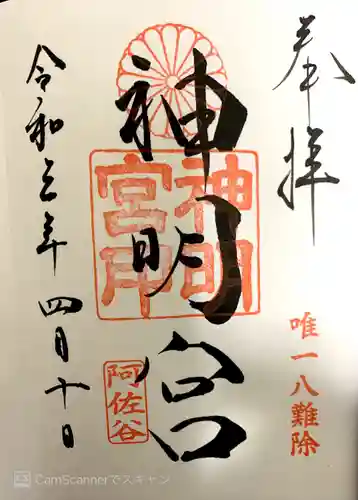 奉拝
唯一八難除
神明宮
神明宮印
阿佐谷
令和三年 四月十日
CamScannerでスキャン